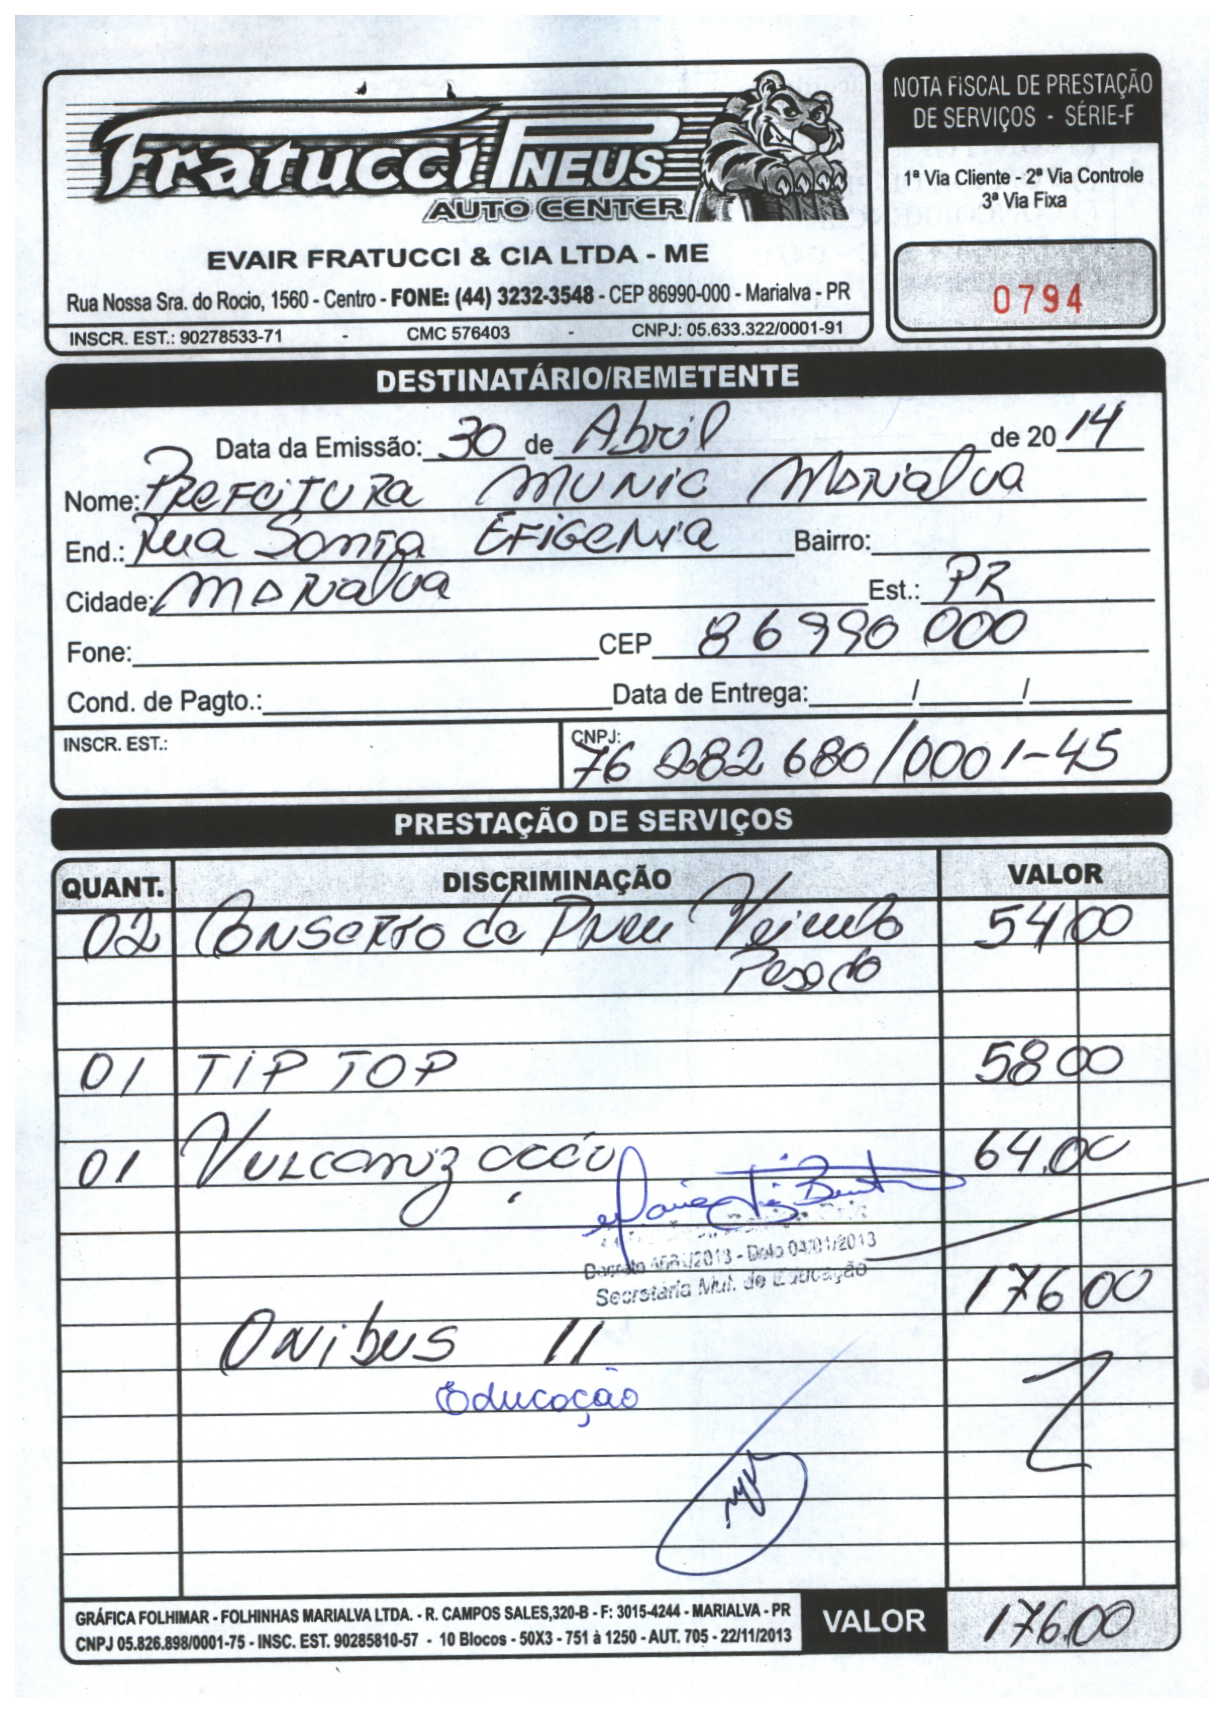 Fratucci PNEUS
AUTO CENTER
EVAIR FRATUCCI & CIA LTDA - ME
Rua Nossa Sra. do Rocio, 1560 - Centro - FONE: (44) 3232-3548 - CEP 86990-000 - Marialva - PR
INSCR. EST.: 90278533-71 - CMC 576403 - CNPJ: 05.633.322/0001-91
NOTA FISCAL DE PRESTAÇÃO
DE SERVIÇOS - SÉRIE-F
1ª Via Cliente - 2ª Via Controle
3ª Via Fixa
0794
DESTINATÁRIO/REMETENTE
Data da Emissão: 30 de Abril de 20 14
Nome: Prefeitura Munic Marialva
End.: Rua Santa Efigenia Bairro:
Cidade: Marialva Est.: PR
Fone: CEP 86990 000
Cond. de Pagto.: Data de Entrega: / /
INSCR. EST.: CNPJ: 76 282 680/0001-45
PRESTAÇÃO DE SERVIÇOS
QUANT. DISCRIMINAÇÃO VALOR
02 Conserto de Pneu Veiculo 54,00
Pesado
01 TIP TOP 58 00
01 Vulcanização 64,00
2013 - Data 04/01/2013
Secretaria Mul. de Educação
176 00
Onibus 11
Educação
GRÁFICA FOLHIMAR - FOLHINHAS MARIALVA LTDA. - R. CAMPOS SALES,320-B - F: 3015-4244 - MARIALVA - PR
CNPJ 05.826.898/0001-75 - INSC. EST. 90285810-57 - 10 Blocos - 50X3 - 751 à 1250 - AUT. 705 - 22/11/2013
VALOR 176.00